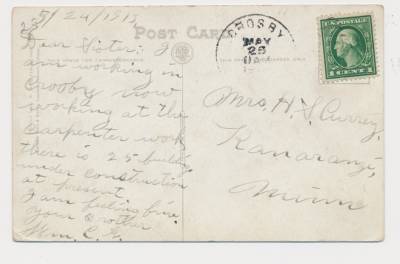 5/24/1915
POST CARD
Dear Sister; I
am working in
Crosby now
working at the
Carpenter work
there is 25 building
under construction
at present
I am feeling fine.
your brother
Wm. C.
CROSBY
MAY
25
U.S. POSTAGE
1 CENT 1
Mrs. H. S. Currey,
Kanaranzi,
Minn